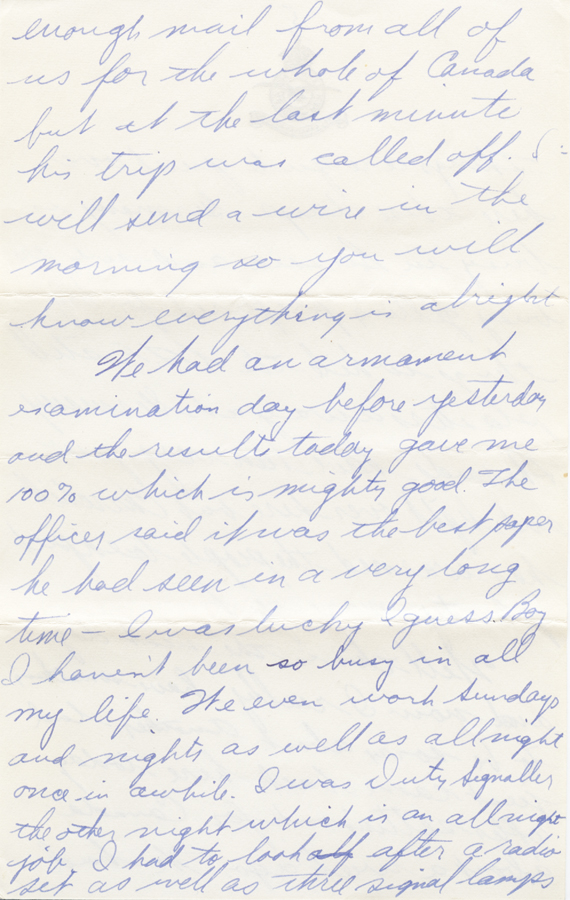 enough mail from all of
us for the whole of Canada
but at the last minute
his trip was called off. I
will send a wire in the
morning so you will
know everything is alright
We had an armament
examination day before yesterday
and the results today gave me
100% which is mighty good. The
officer said it was the best paper
he had seen in a very long
time – I was lucky I guess. Boy
I haven't been so busy in all
my life. We even work Sundays
and nights as well as all night
once in awhile. I was Duty Signaller
the other night which is an all night
job. I had to look after a radio
set as well as three signal lamps